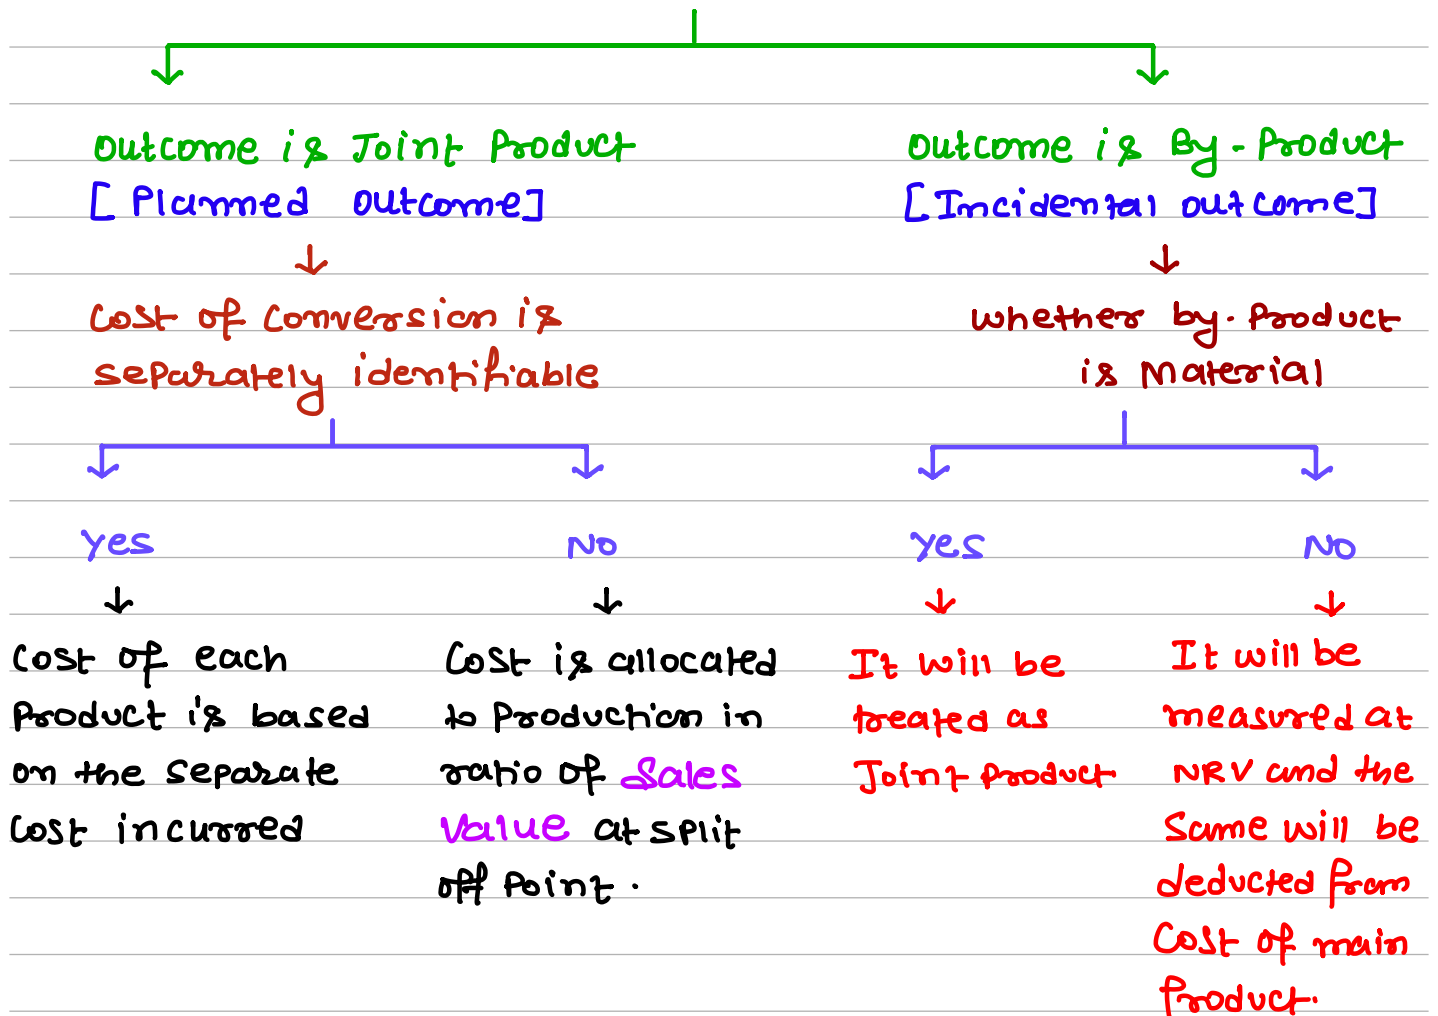 Outcome is Joint Product
[Planned Outcome]
Cost of Conversion is
separately identifiable
Yes
No
Cost of each
Product is based
on the separate
Cost incurred
Cost is allocated
to Production in
ratio of Sales
Value at split
off Point.
Outcome is By-Product
[Incidental outcome]
whether by-Product
is Material
Yes
No
It will be
treated as
Joint Product
It will be
measured at
NRV and the
Same will be
deducted from
Cost of main
Product.